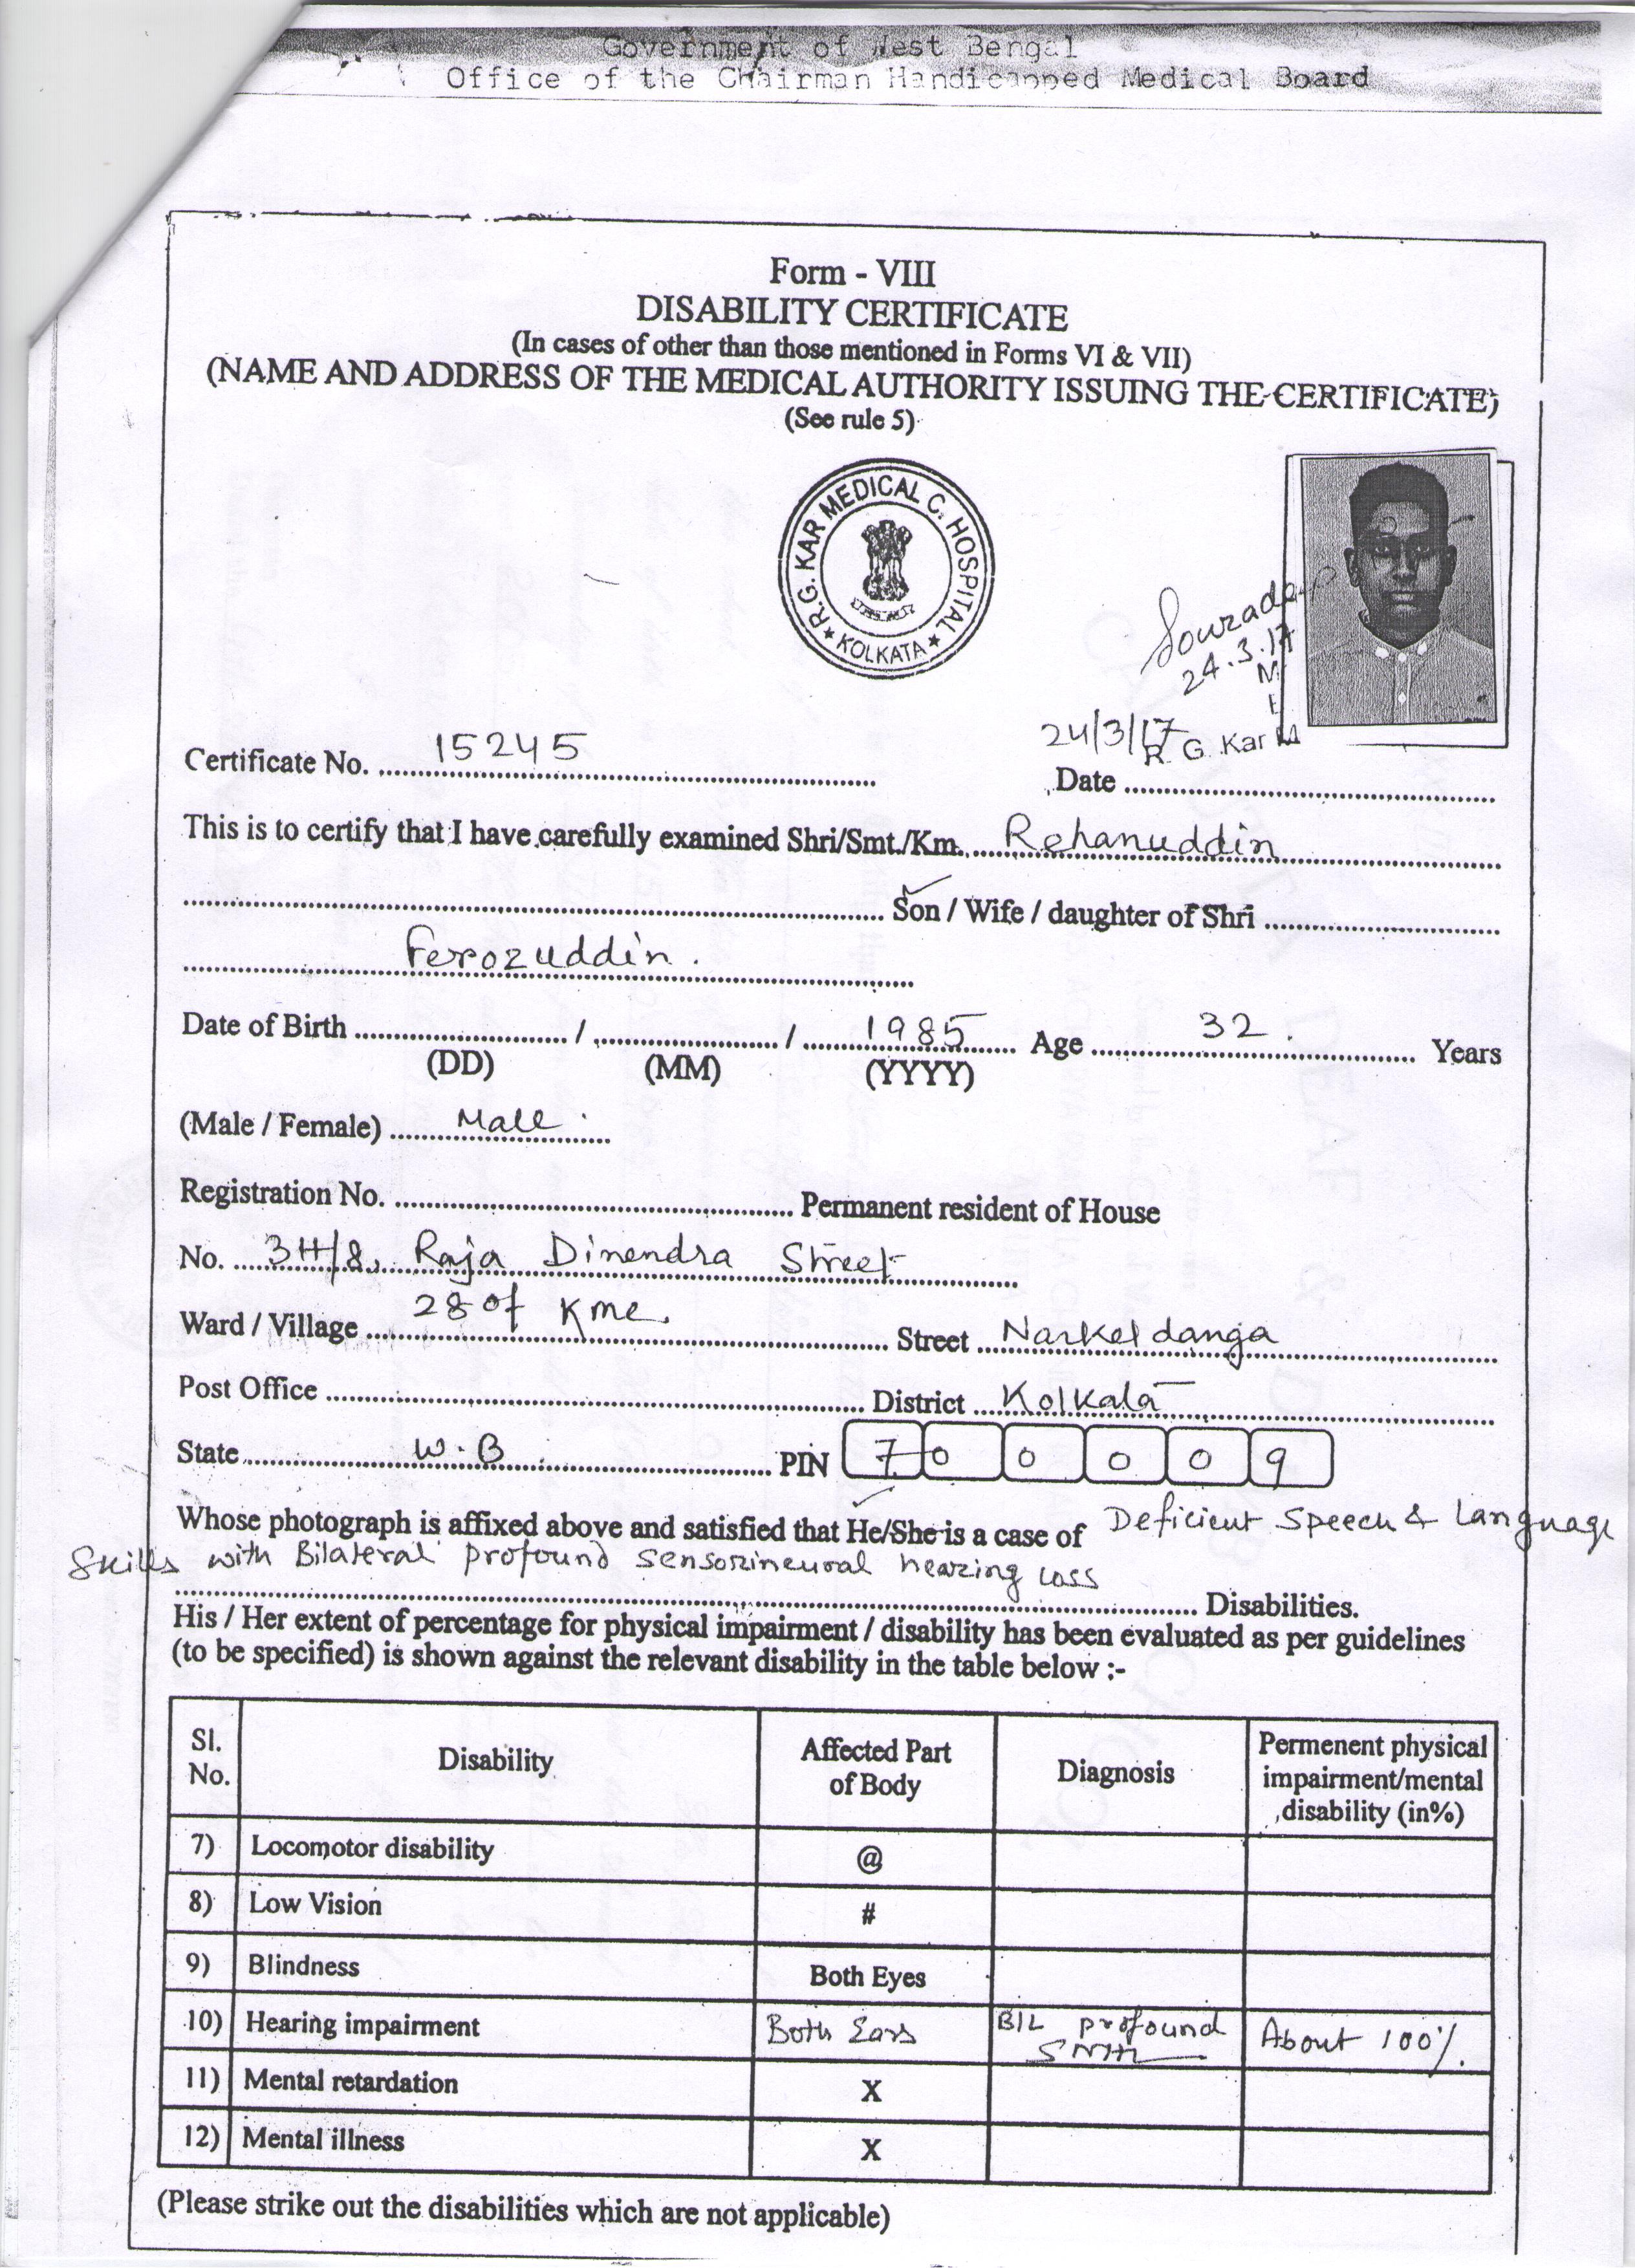 Government of West Bengal
Office of the Chairman Handicapped Medical Board
Form - VIII
DISABILITY CERTIFICATE
(In cases of other than those mentioned in Forms VI & VII)
(NAME AND ADDRESS OF THE MEDICAL AUTHORITY ISSUING THE CERTIFICATE)
(See rule 5)
R.G. KAR MEDICAL C. HOSPITAL
★ KOLKATA ★
24.3.17
R. G. Kar M
Certificate No. 15245
24/3/17
Date
This is to certify that I have carefully examined Shri/Smt./Km. Rehanuddin
Son / Wife / daughter of Shri
Ferozuddin.
Date of Birth / / 1985 Age 32. Years
(DD) (MM) (YYYY)
(Male / Female) Male
Registration No. Permanent resident of House
No. 3H/8, Raja Dinendra Street
Ward / Village 28 of KMC. Street Narkeldanga
Post Office District Kolkata
State W.B PIN 7 0 0 0 0 9
Whose photograph is affixed above and satisfied that He/She is a case of Deficient Speech & Language
Skills with Bilateral profound sensorineural hearing loss
Disabilities.
His / Her extent of percentage for physical impairment / disability has been evaluated as per guidelines
(to be specified) is shown against the relevant disability in the table below :-
Sl. No. Disability Affected Part of Body Diagnosis Permenent physical impairment/mental disability (in%)
7) Locomotor disability @
8) Low Vision #
9) Blindness Both Eyes
10) Hearing impairment Both Ears B/L profound SNHL About 100%.
11) Mental retardation X
12) Mental illness X
(Please strike out the disabilities which are not applicable)